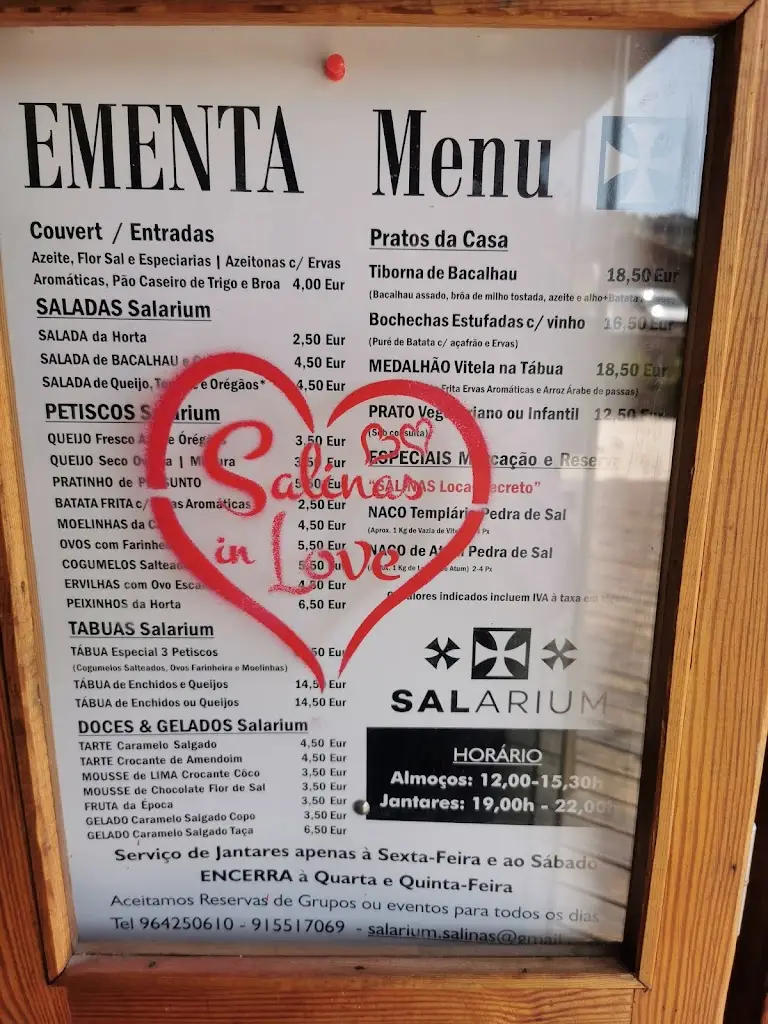 EMENTA Menu
Couvert / Entradas
Azeite, Flor Sal e Especiarias | Azeitonas c/ Ervas
Aromáticas, Pão Caseiro de Trigo e Broa 4,00 Eur
SALADAS Salarium
SALADA da Horta 2,50 Eur
SALADA de BACALHAU 4,50 Eur
SALADA de Queijo, e Orégãos* 4,50 Eur
PETISCOS Salarium
QUEIJO Fresco 3,50 Eur
QUEIJO Seco | 3,50 Eur
PRATINHO de 5,50 Eur
BATATA FRITA c/ Aromáticas 2,50 Eur
MOELINHAS da 4,50 Eur
OVOS com 5,50 Eur
COGUMELOS 5,50 Eur
ERVILHAS com Ovo 4,50 Eur
PEIXINHOS da Horta 6,50 Eur
TABUAS Salarium
TÁBUA Especial 3 Petiscos Eur
(Cogumelos Salteados, Ovos Farinheira e Moelinhas)
TÁBUA de Enchidos e Queijos 14,50 Eur
TÁBUA de Enchidos ou Queijos 14,50 Eur
DOCES & GELADOS Salarium
TARTE Caramelo Salgado 4,50 Eur
TARTE Crocante de Amendoim 4,50 Eur
MOUSSE de LIMA Crocante Côco 3,50 Eur
MOUSSE de Chocolate Flor de Sal 3,50 Eur
FRUTA da Época 3,50 Eur
GELADO Caramelo Salgado Copo 3,50 Eur
GELADO Caramelo Salgado Taça 6,50 Eur
Pratos da Casa
Tiborna de Bacalhau 18,50 Eur
(Bacalhau assado, brôa de milho tostada, azeite e alho+Batata
Bochechas Estufadas c/ vinho 16,50 Eur
(Puré de Batata c/ açafrão e Ervas)
MEDALHÃO Vitela na Tábua 18,50 Eur
Frita Ervas Aromáticas e Arroz Árabe de passas)
PRATO Vegetariano ou Infantil 12,50 Eur
(Sob consulta)
ESPECIAIS Marcação e Reserva
"SALINAS Local Secreto"
NACO Templário Pedra de Sal
(Aprox. 1 Kg de Vazia de
NACO de Atum Pedra de Sal
1 Kg de Atum) 2-4 Px
indicados incluem IVA à taxa em
Salinas
in Love
SALARIUM
HORÁRIO
Almoços: 12,00-15,30h
Jantares: 19,00h - 22,00h
Serviço de Jantares apenas à Sexta-Feira e ao Sábado
ENCERRA à Quarta e Quinta-Feira
Aceitamos Reservas de Grupos ou eventos para todos os dias
Tel 964250610 - 915517069 - salarium.salinas@gmail